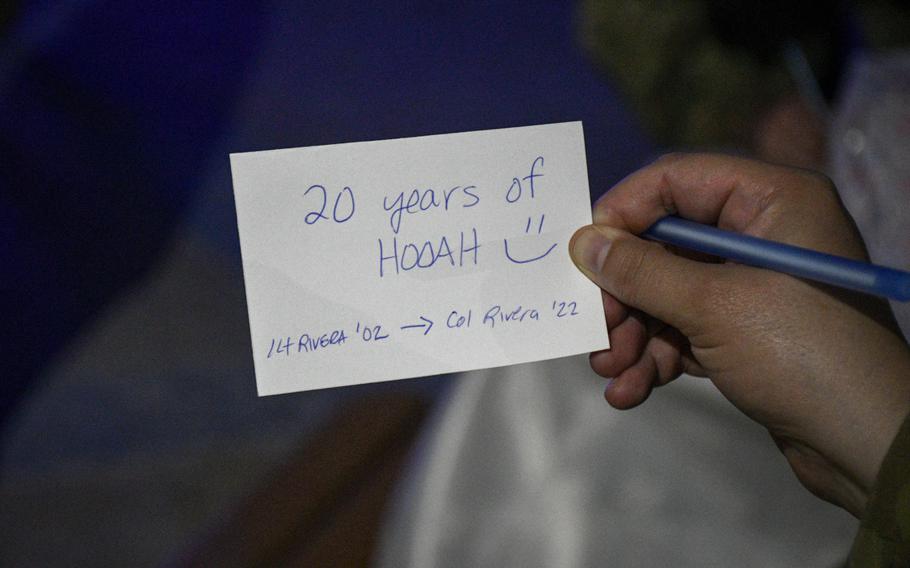 20 years of
HOOAH
1Lt RIVERA '02 → Col Rivera '22